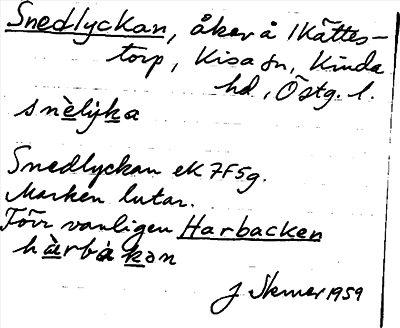 Snedlyckan, åker å Kättes-
torp, Kisa sn, Kinda
hd, Östg. l.
snèlyka
Snedlyckan ek 7F5g.
Marken lutar.
Förr vanligen Harbacken
hàrbákən
J 1959